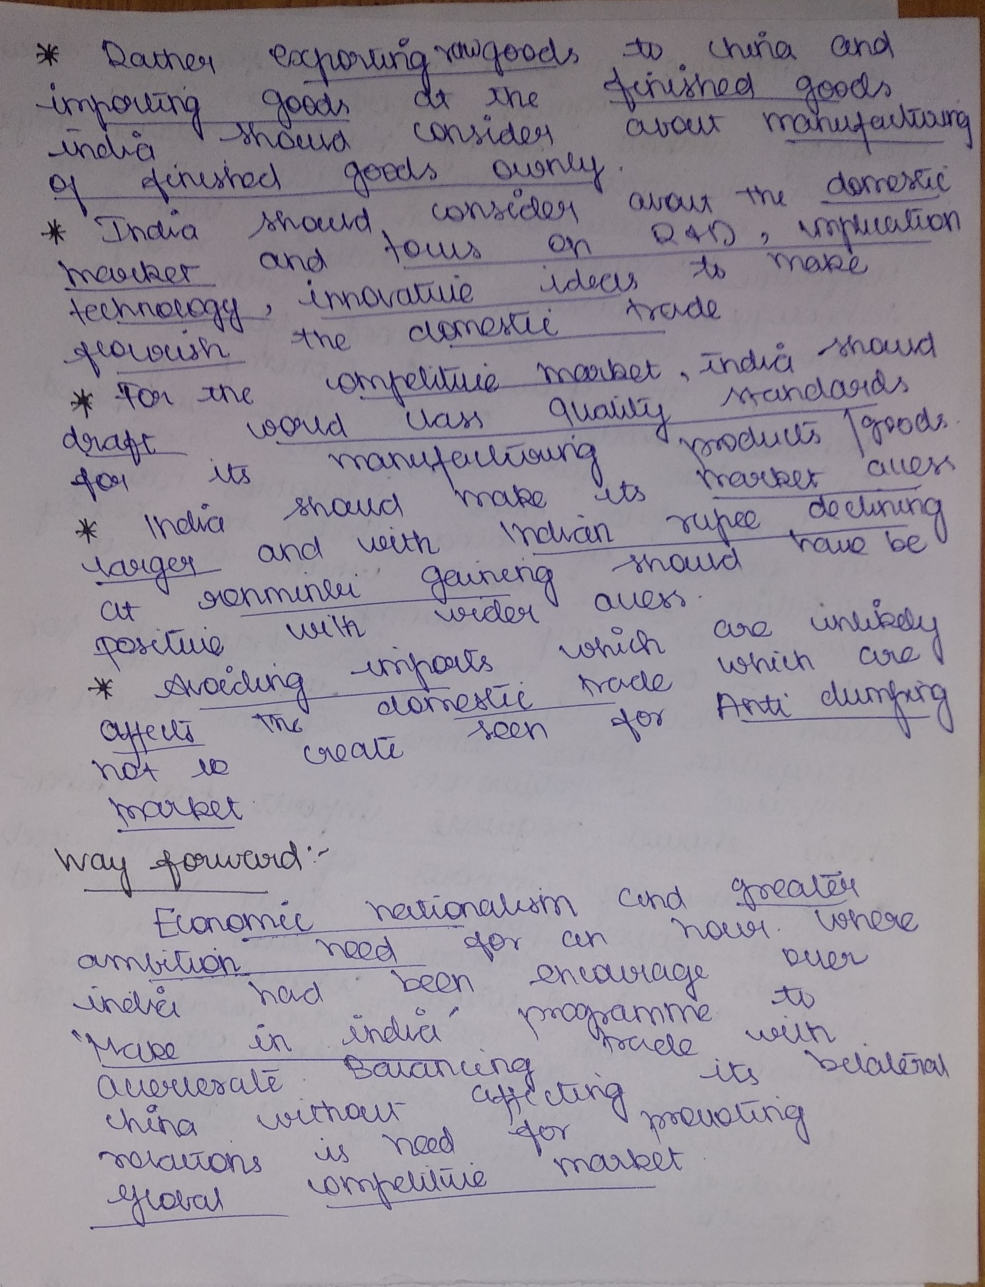 * Rather exporting raw goods to china and
importing goods at the finished goods
india should consider about manufacturing
of finished goods ownly.
* India should consider about the domestic
market and focus on R&D, implication
technology, innovative ideas to make
flourish the domestic trade
* For the competitive market, india should
draft world class quality standards
for its manufacturing products/goods.
* India should make its market access
larger and with Indian rupee declining
at renminbi gaining should have be
positive with wider access.
* Avoiding imports which are unlikely
affects the domestic trade which are
not to create seen for Anti dumping
market
Way forward:-
Economic nationalism and greater
ambition need for an hour. Where
india had been encourage over
"Make in india" programme to
accelerate. Balancing trade with
china without affecting its bilateral
relations is need for promoting
global competitive market